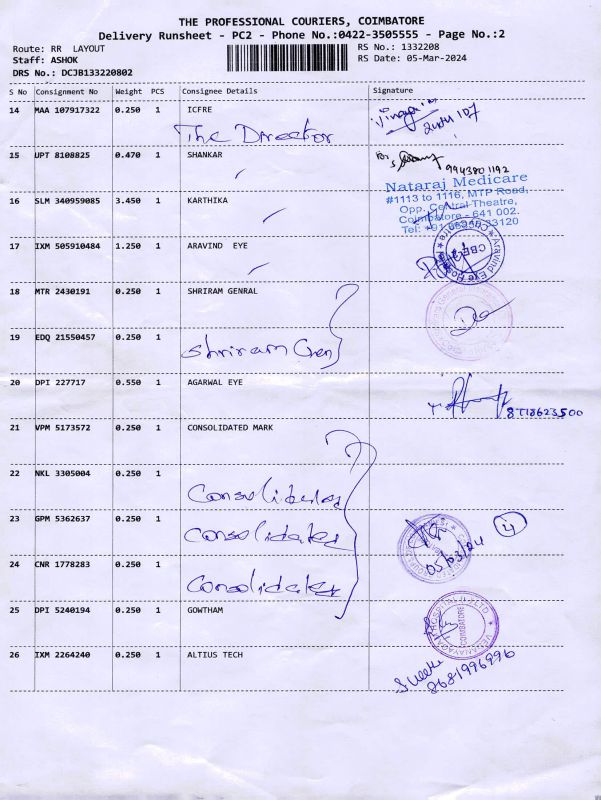 THE PROFESSIONAL COURIERS, COIMBATORE
Delivery Runsheet - PC2 - Phone No.:0422-3505555 - Page No.:2
Route: RR LAYOUT RS No.: 1332208
Staff: ASHOK RS Date: 05-Mar-2024
DRS No.: DCJB133220802
S No Consignment No Weight PCS Consignee Details Signature
14 MAA 107917322 0.250 1 ICFRE
The Director
15 UPT 8108825 0.470 1 SHANKAR
9943801192
Nataraj Medicare
#1113 to 1116, MTP Road,
Opp. Central Theatre,
Coimbatore - 641 002.
16 SLM 340959085 3.450 1 KARTHIKA
17 IXM 505910484 1.250 1 ARAVIND EYE
18 MTR 2430191 0.250 1 SHRIRAM GENRAL
19 EDQ 21550457 0.250 1
Shriram Gen
20 DPI 227717 0.550 1 AGARWAL EYE
21 VPM 5173572 0.250 1 CONSOLIDATED MARK
22 NKL 3305004 0.250 1
Consolidated
23 GPM 5362637 0.250 1
Consolidated
05/03/24
24 CNR 1778283 0.250 1
Consolidated
25 DPI 5240194 0.250 1 GOWTHAM
COIMBATORE
26 IXM 2264240 0.250 1 ALTIUS TECH
8681996996